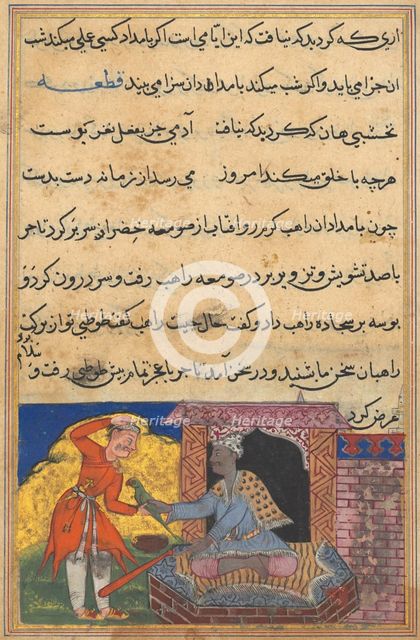 ازی که کردید که نیافت که این ایامی است اکر بامداد کسی عملی میکند شب
آن جزا می یابد و اکر شب میکند بامدادان سزا می بیند قطعه
نخشبی هان که کرد بد که نیافت آدمی جز بفعل نغز نیوست
هرچه با خلق میکند امروز می رسد از زمانه دست بدست
چون بامدادان راهب کرم رو آفتاب از صومعه خضرا سر بر کرد تاجر
باصد تشویش و تزویر بر در صومعه راهب رفت و سر درون کرد و
بوسه بر سجاده راهب داد و کفت حال چیست راهب کفت طوطی تو از برکت
راهبان سخن ما شنید و در سخن آمد تاجر با عجز تمام پیش طوطی رفت و
سلام
عرض کرد
Heritage
Heritage
Heritage
Heritage
Heritage